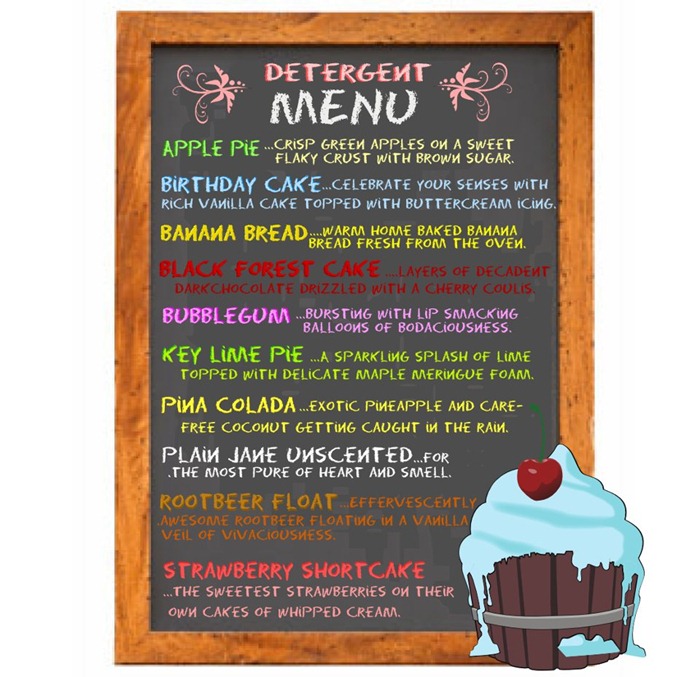 DETERGENT
MENU
APPLE PIE ...CRISP GREEN APPLES ON A SWEET
FLAKY CRUST WITH BROWN SUGAR.
BIRTHDAY CAKE...CELEBRATE YOUR SENSES WITH
RICH VANILLA CAKE TOPPED WITH BUTTERCREAM ICING.
BANANA BREAD....WARM HOME BAKED BANANA
BREAD FRESH FROM THE OVEN.
BLACK FOREST CAKE ....LAYERS OF DECADENT
DARKCHOCOLATE DRIZZLED WITH A CHERRY COULIS.
BUBBLEGUM ...BURSTING WITH LIP SMACKING
BALLOONS OF BODACIOUSNESS.
KEY LIME PIE ...A SPARKLING SPLASH OF LIME
TOPPED WITH DELICATE MAPLE MERINGUE FOAM.
PINA COLADA...EXOTIC PINEAPPLE AND CARE-
FREE COCONUT GETTING CAUGHT IN THE RAIN.
PLAIN JANE UNSCENTED...FOR
.THE MOST PURE OF HEART AND SMELL.
ROOTBEER FLOAT ...EFFERVESCENTLY
.AWESOME ROOTBEER FLOATING IN A VANILLA
VEIL OF VIVACIOUSNESS.
STRAWBERRY SHORTCAKE
...THE SWEETEST STRAWBERRIES ON THEIR
OWN CAKES OF WHIPPED CREAM.